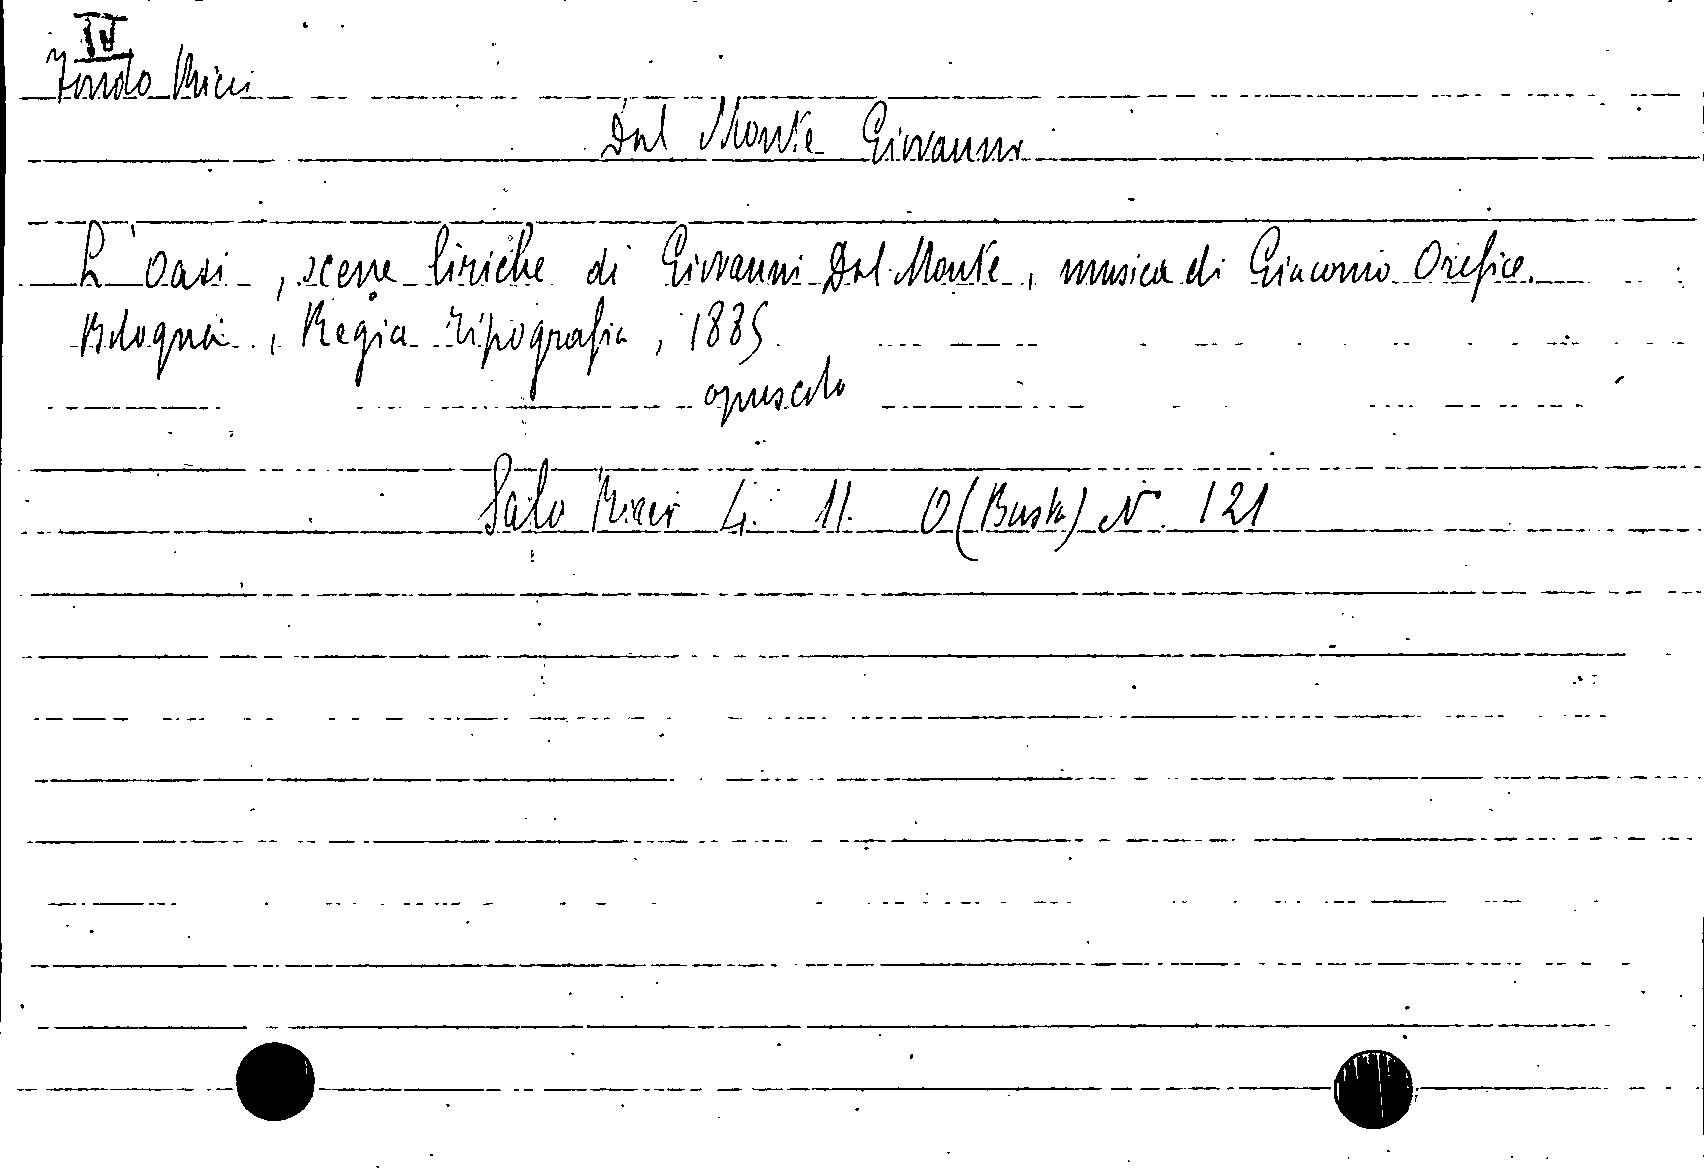 IV
Fondo Ricci
Dal Monte Giovanni
L'Oasi, scene liriche di Giovanni Dal Monte, musica di Giacomo Orefice.
Bologna, Regia Tipografia, 1885
opuscolo
Sala Ricci 4. 11. O (Busta) N. 121